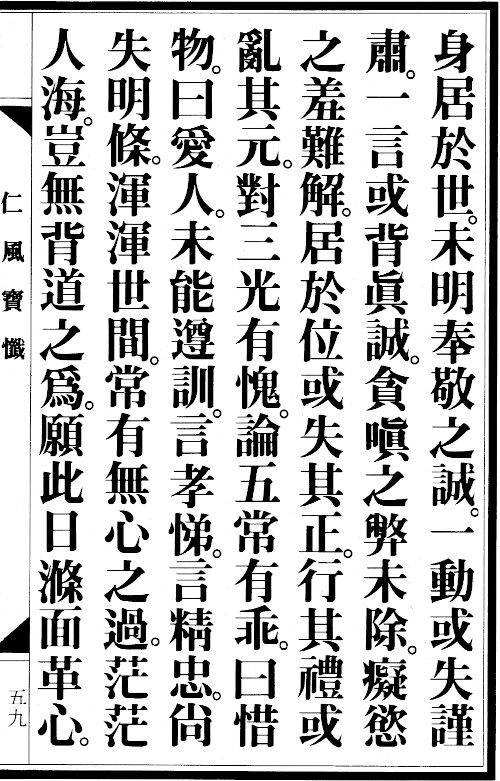 身居於世。未明奉敬之誠。一動或失謹
肅。一言或背眞誠。貪嗔之弊未除。癡慾
之羞難解。居於位或失其正。行其禮或
亂其元。對三光有愧。論五常有乖。曰惜
物。曰愛人。未能遵訓。言孝悌。言精忠。尙
失明條。渾渾世間。常有無心之過。茫茫
人海。豈無背道之爲。願此日滌面革心。
仁風寶懺
五九